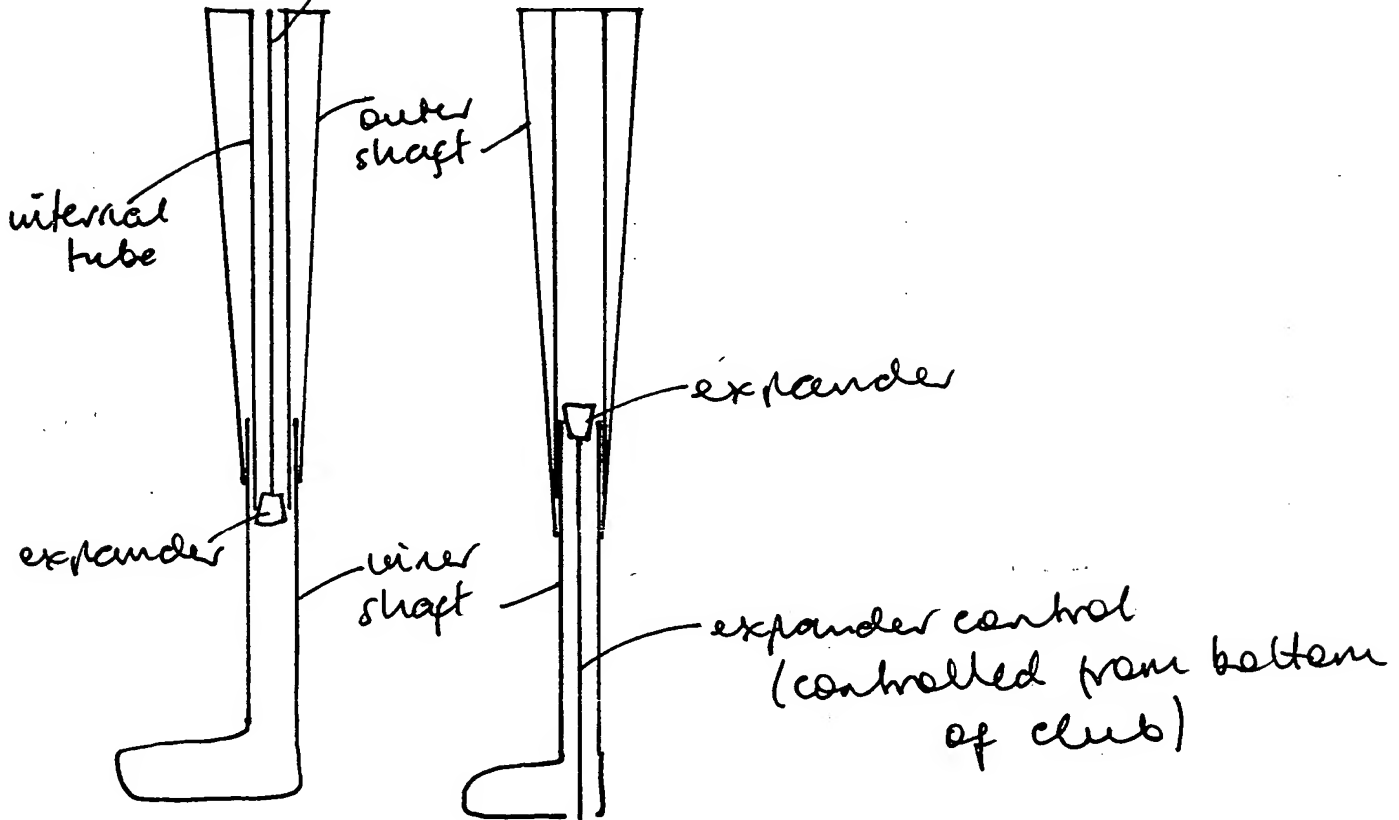 outer
shaft
internal
tube
expander
expander
inner
shaft
expander control
(controlled from bottom
of club)